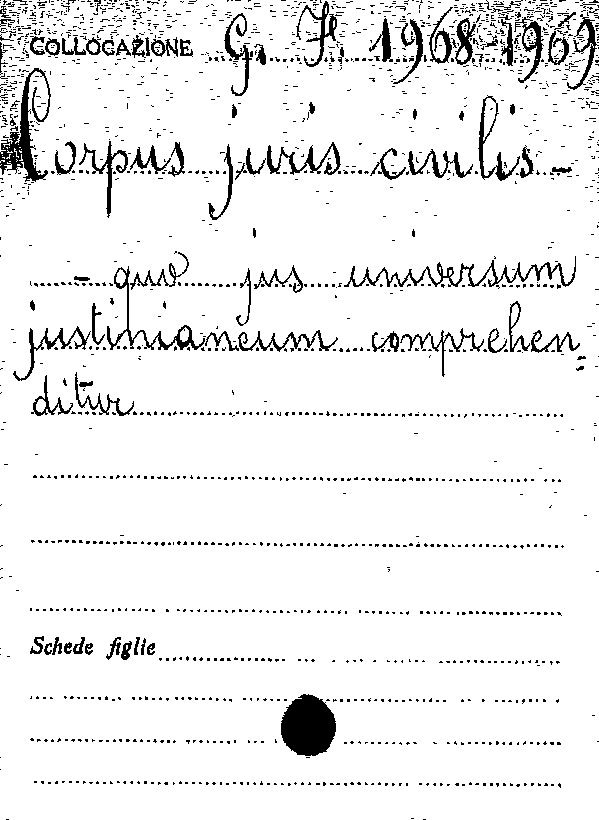 COLLOCAZIONE G. F. 1968-1969
Corpus juris civilis -
- quo jus universum
justinianeum comprehen=
ditur
Schede figlie